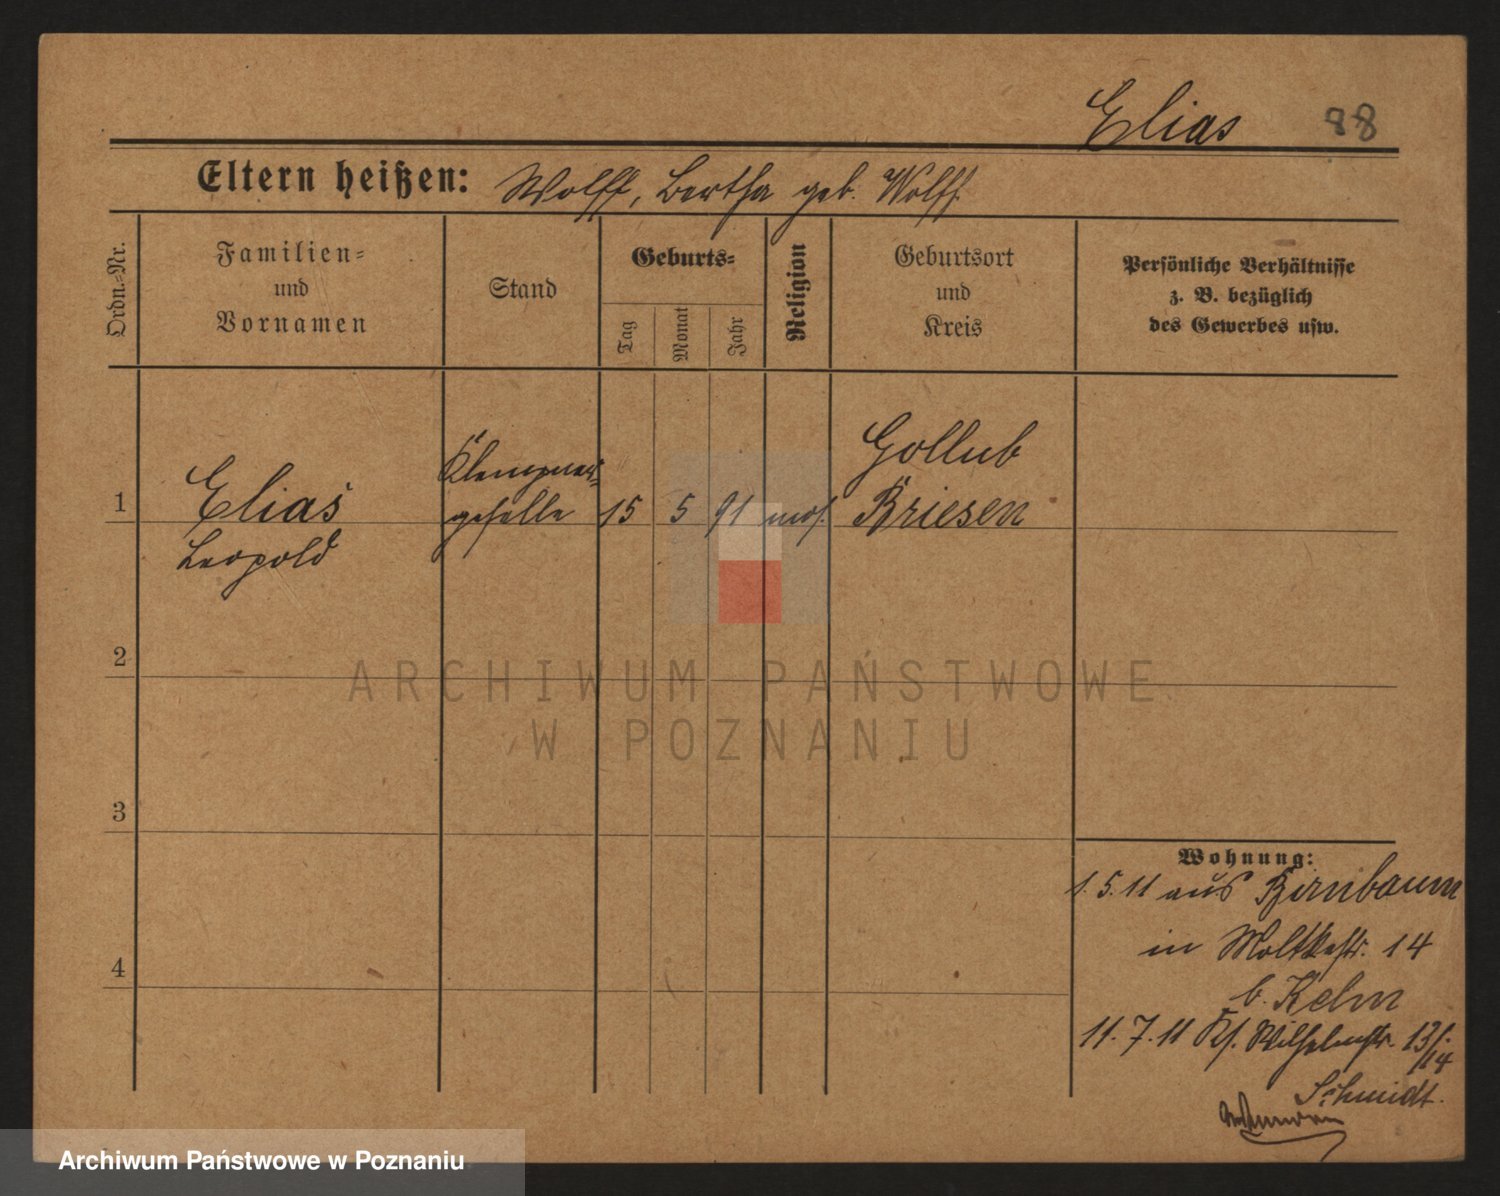 Elias 88
Eltern heißen: Wolff, Bertha geb. Wolff.
Ordn.=Nr.
Familien=
und
Vornamen
Stand
Geburts=
Tag
Monat
Jahr
Religion
Geburtsort
und
Kreis
Persönliche Verhältnisse
z. B. bezüglich
des Gewerbes usw.
1
Elias
Leopold
Klempner=
geselle
15 5 91 mos.
Gollub
Briesen
2
3
4
Wohnung:
1. 5. 11 aus Birnbaum
in Moltkestr. 14
b. Kelm
11. 7. 11 Kf. Wilhelmstr. 13/.
/14
Schmidt.
ARCHIWUM PAŃSTWOWE
W POZNANIU
Archiwum Państwowe w Poznaniu